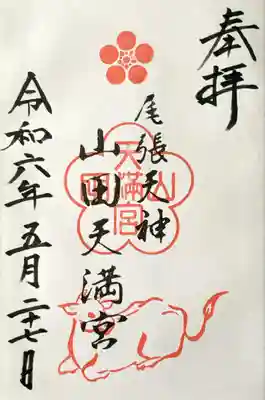 奉拝
尾張天神
山田天満宮
天満宮
山田
令和六年五月二十七日